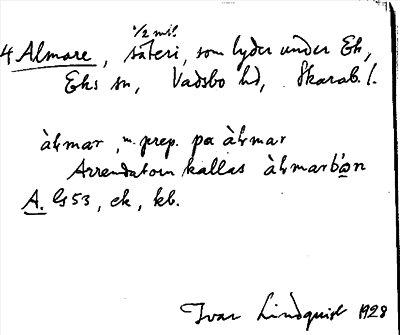 1/2 mtl
4 Almare, säteri, som lyder under Ek,
Eks sn, Vadsbo hd, Skarab. l.
àɫmar, m. prep. på àɫmar
Arrendatorn kallas àɫmarbón
A. Gs 53, ek, kb.
Ivar Lindquist 1928